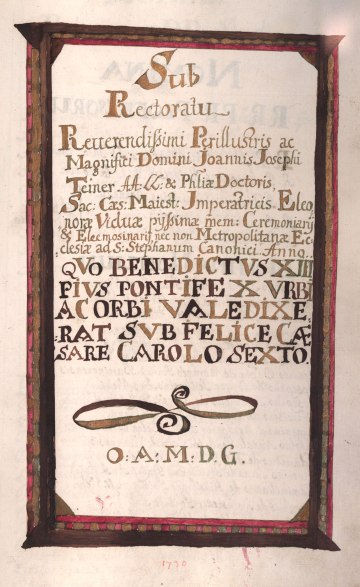 Sub
Rectoratu
Reverendissimi Perillustris ac
Magnifici Domini Joannis Josephi
Teiner AA: LL: & Philiæ Doctoris,
Sac: Cæs: Maiest: Imperatricis Eleo
noræ Viduæ pijssimæ mem: Ceremoniarij
& Eleemosinarij nec non Metropolitanæ Ec
clesiæ ad S: Stephanum Canonici Anno
QUO BENEDICTUS XIII
PIUS PONTIFEX URBI
AC ORBI VALEDIXE
RAT SUB FELICE CÆ
SARE CAROLO SEXTO.
O: A: M: D: G.
1730